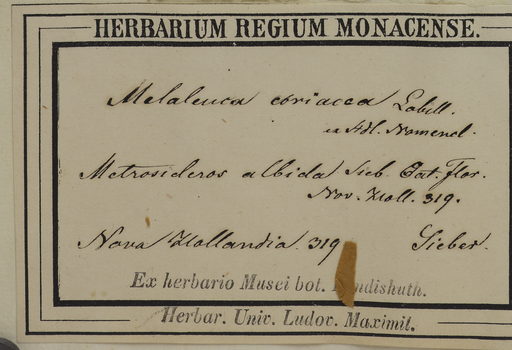 HERBARIUM REGIUM MONACENSE.
Melaleuca coriacea Labill.
ex Stdl. Nomencl.
Metrosideros albida Sieb. Cat. Flor.
Nov. Holl. 319.
Nova Hollandia. 319 Sieber.
Ex herbario Musei bot.
Herbar. Univ. Ludov. Maximil.